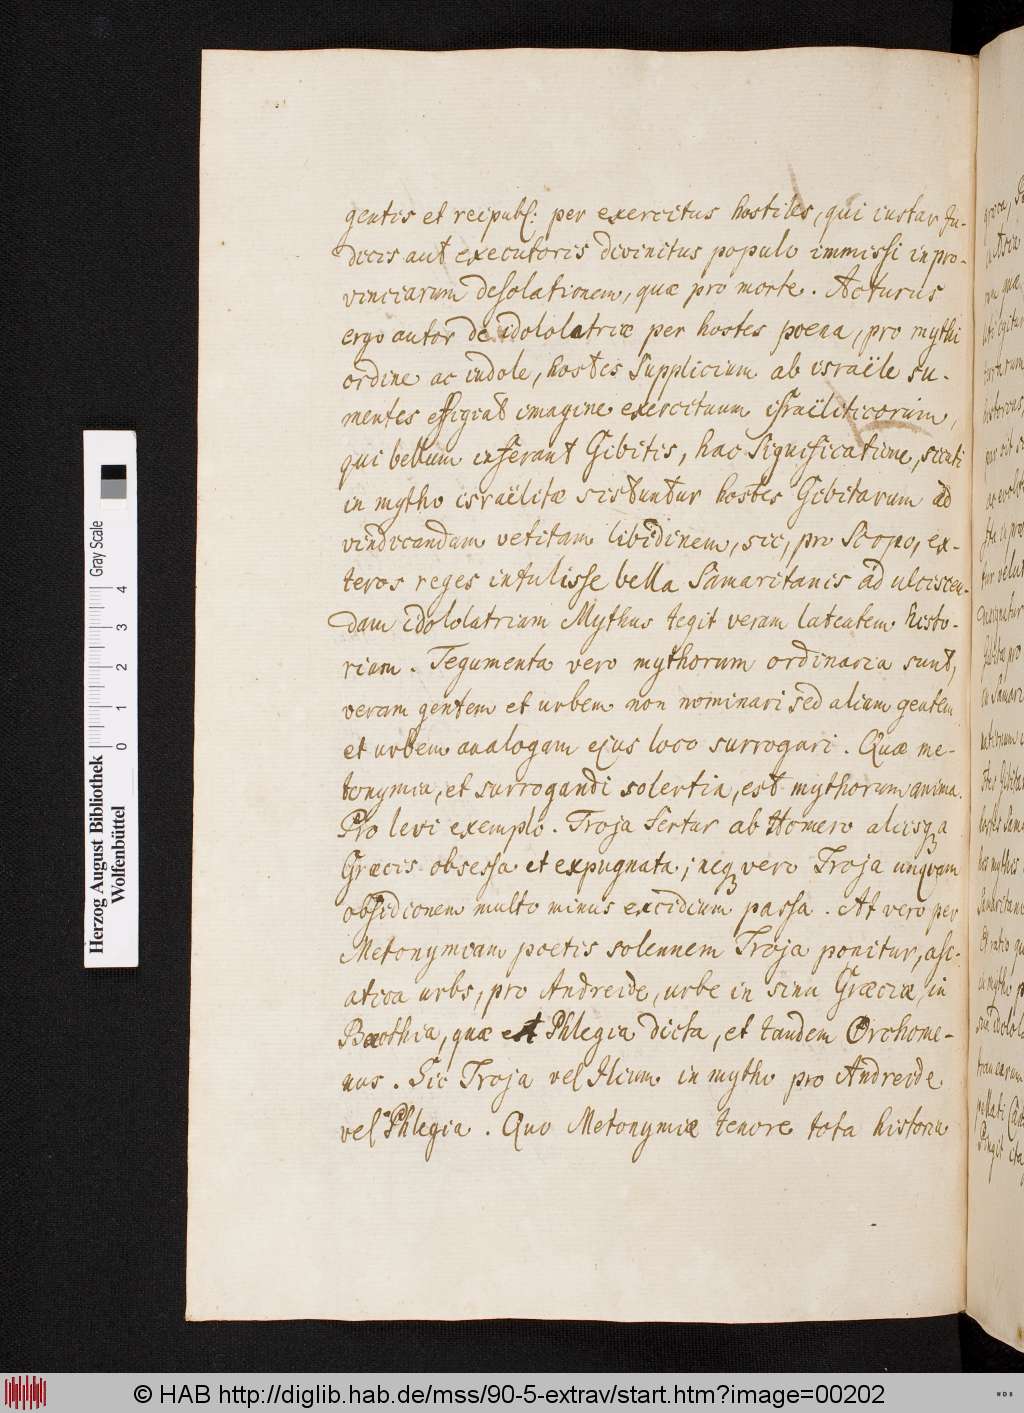 gentis et reipubl: per exercitus hostiles, qui instar Ju-
dicis aut executoris divinitus populo immissi in pro-
vinciarum desolationem, quæ pro morte. Acturus
ergo autor de idololatriæ per hostes poena, pro mythi
ordine ac indole, hostes Supplicium ab israële su-
mentes effigiat imagine exercituum israëliticorum,
qui bellum inferant Gibitis, hac Significatione, sicuti
in mytho israëlitæ sistuntur hostes Gibitarum ad
vindicandam vetitam libidinem, sic, pro Scopo, ex-
teros reges intulisse bella Samaritanis ad ulciscen-
dam idololatriam Mythus tegit veram latentem histo-
riam. Tegumenta vero mythorum ordinaria sunt,
veram gentem et urbem non nominari sed aliam gentem
et urbem analogam ejus loco surrogari. Quæ me-
tonymia, et surrogandi solertia, est mythorum anima.
Pro levi exemplo. Troja fertur ab Homero aliisq a
Græcis obsessa et expugnata; neq vero Troja unqvam
obsidionem multo minus excidium passa. At vero per
Metonymiam poetis solennem Troja ponitur, asi-
atica urbs, pro Andreide, urbe in sinu Græciæ, in
Bæothia, quæ et Phlegia dicta, et tandem Orchome-
nus. Sic Troja vel Ilium in mytho pro Andreide
vel Phlegia. Quo Metonymiæ tenore tota historia
Herzog August Bibliothek
Wolfenbüttel
0 1 2 3 4
Gray Scale
© HAB http://diglib.hab.de/mss/90-5-extrav/start.htm?image=00202